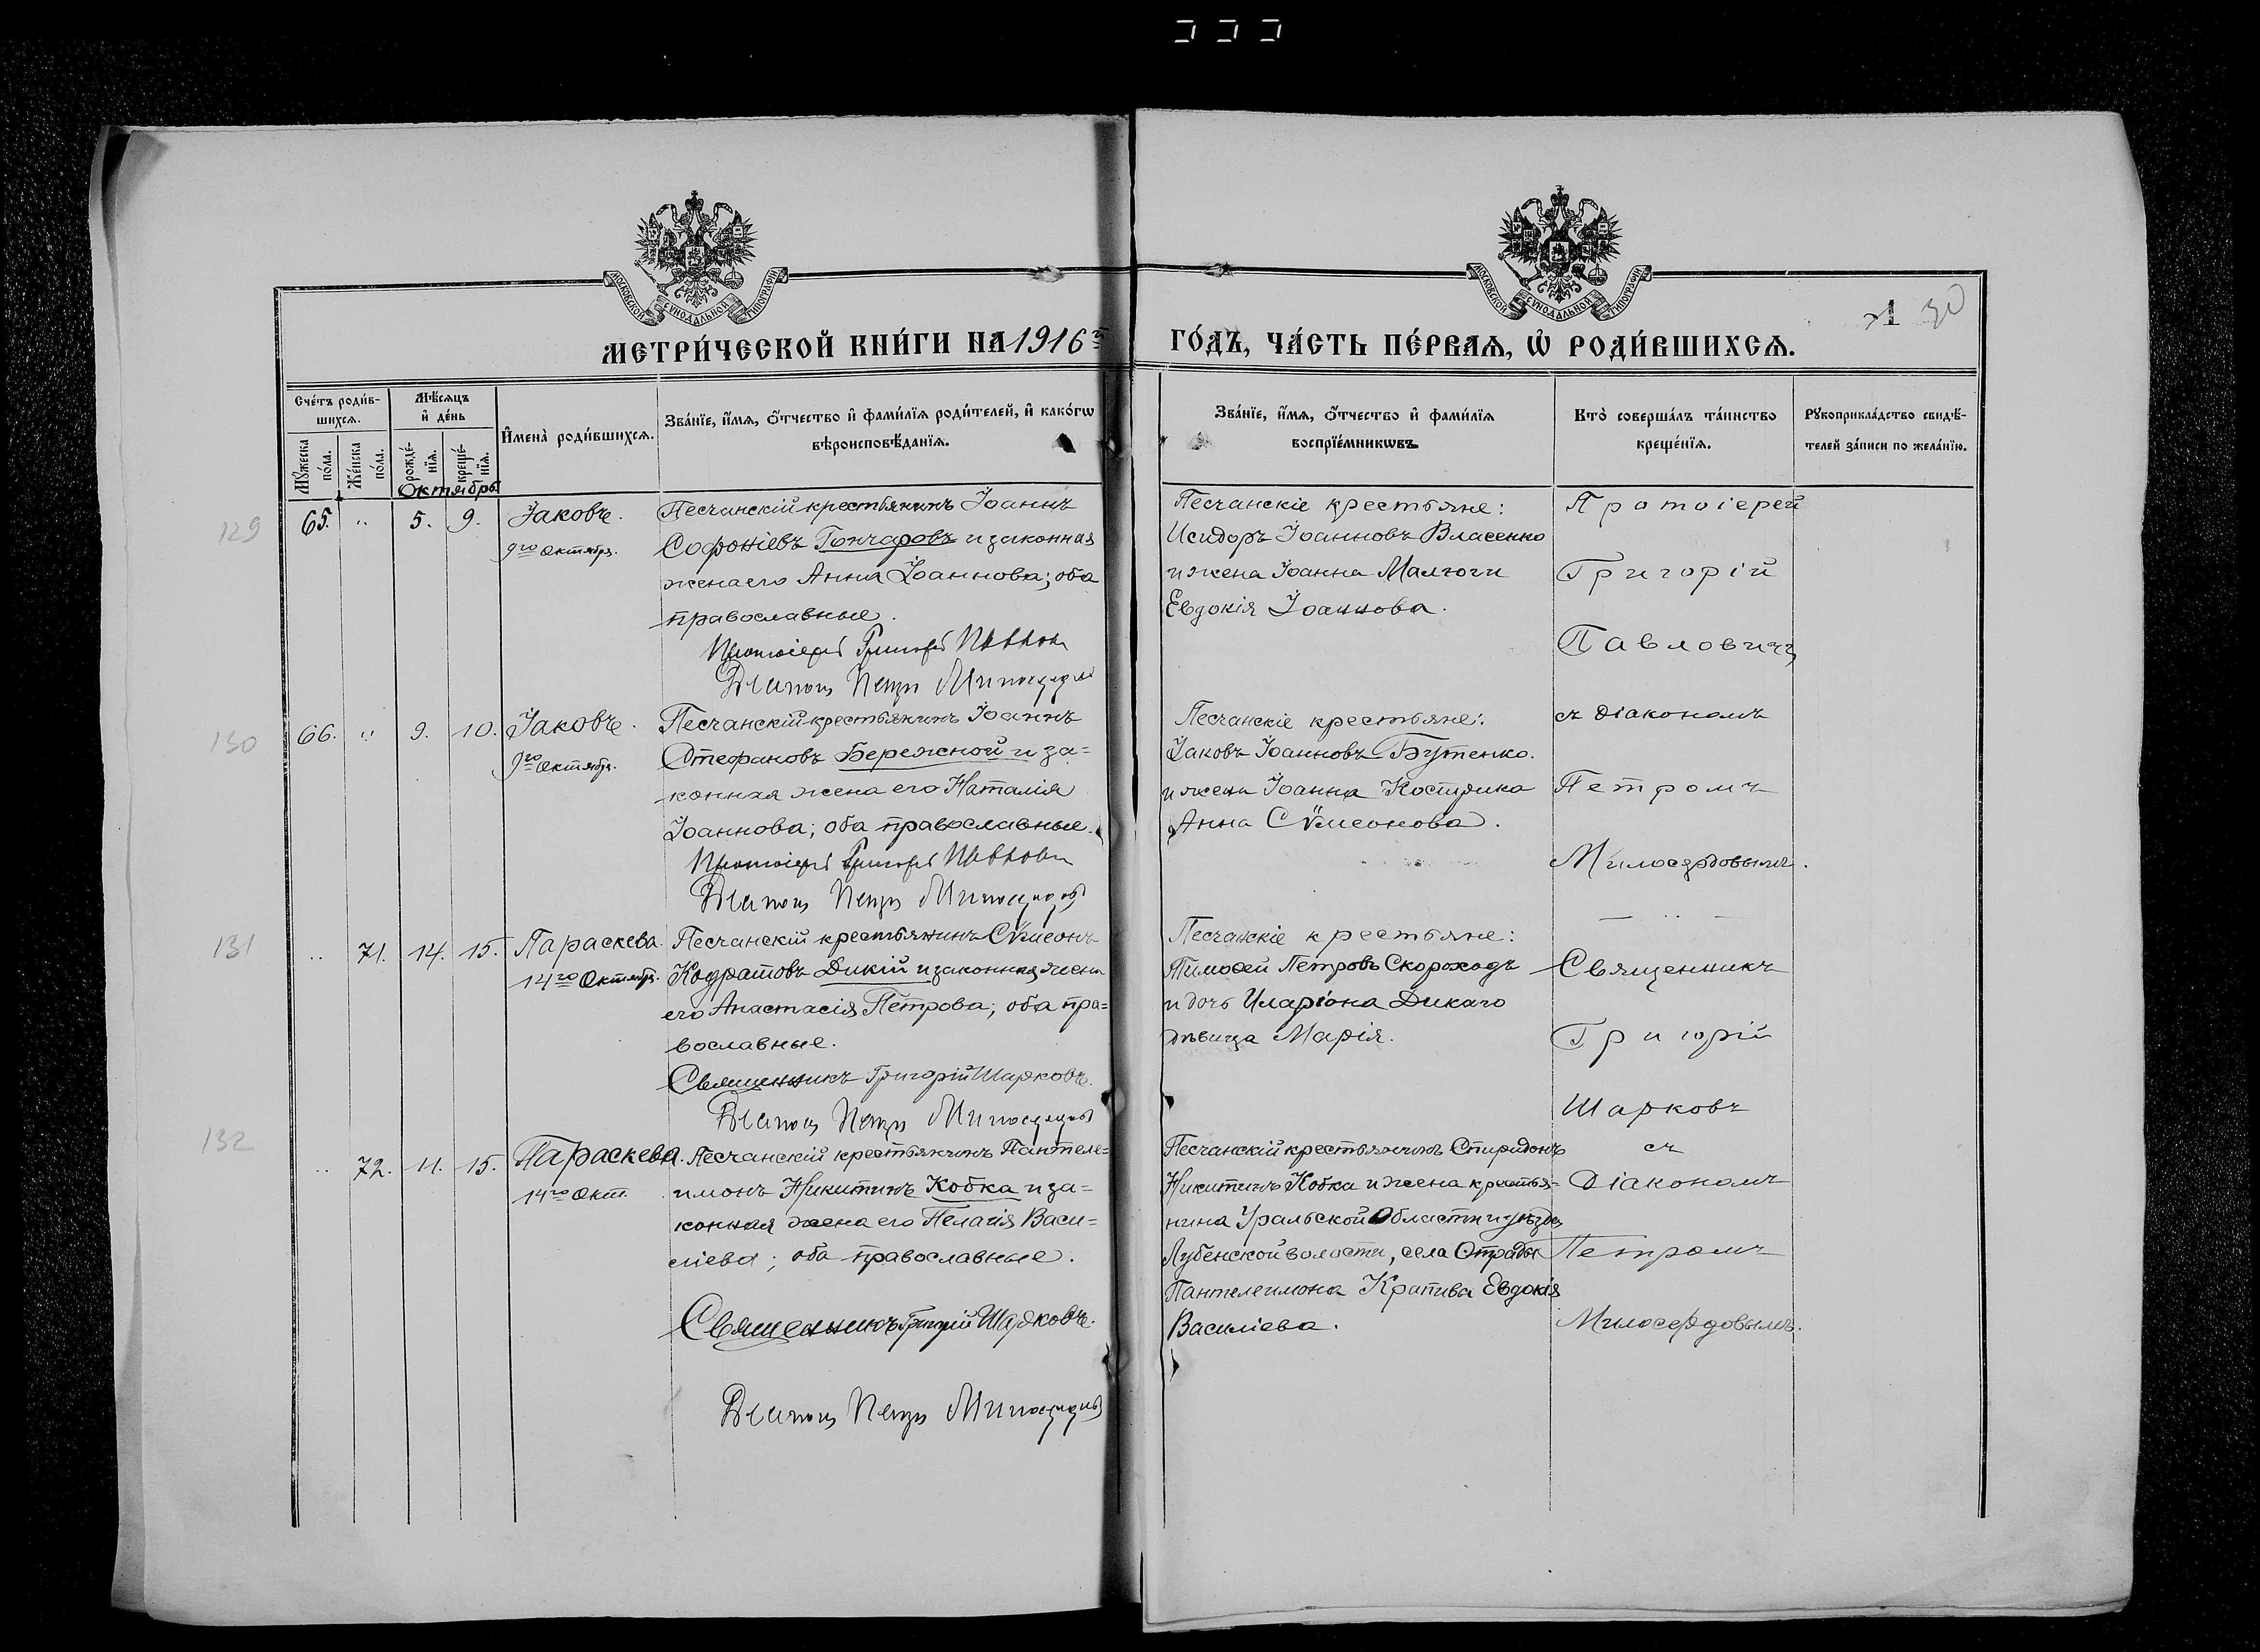 МОСКОВСКОЙ СѴНОДАЛЬНОЙ ТИПОГРАФІИ
МОСКОВСКОЙ СѴНОДАЛЬНОЙ ТИПОГРАФІИ
30
МЕТРИ́ЧЕСКОЙ КНИ́ГИ НА 1916 й
ГО́ДЪ, ЧА́СТЬ ПЕ́РВАѦ, Ѡ҆ РОДИ́ВШИХСѦ.
Сче́тъ роди́в-
шихсѧ.
Мꙋ́жеска
по́ла.
Же́нска
по́ла.
Мѣ́сѧцъ
и҆ де́нь
рожде́-
нїѧ.
креще́-
нїѧ.
И҆мена̀ роди́вшихсѧ.
Зва́нїе, и҆́мѧ, ѻ҆́тчество и҆ фами́лїѧ роди́телей, и҆ како́гѡ
вѣроисповѣ́данїѧ.
Зва́нїе, и҆́мѧ, ѻ҆́тчество и҆ фами́лїѧ
воспрїе́мникѡвъ
Кто̀ соверша́лъ та́инство
креще́нїѧ.
Рꙋкоприкла́дство свидѣ́-
телей за́писи по жела́нїю.
Октябрь
129
65. " 5. 9. Іаковъ.
9го Октября.
Песчанскій крестьянинъ Іоаннъ
Софоніевъ Гончаровъ и законная
жена его Анна Іоаннова; оба
православные.
Протоіерей Григорій Павлови
Діаконъ Петръ Милосердов
Песчанскіе крестьяне:
Исидоръ Іоанновъ Власенко
и жена Іоанна Малюги
Евдокія Іоаннова.
Протоіерей
Григорій
Павловичъ
съ діакономъ
Петромъ
Милосердовымъ.
130
66. " 9. 10. Іаковъ.
9го Октября.
Песчанскій крестьянинъ Іоаннъ
Стефановъ Бережной и за=
конная жена его Наталія
Іоаннова; оба православные.
Протоіерей Григорій Павлови
Діаконъ Петръ Милосердовъ
Песчанскіе крестьяне:
Іаковъ Іоанновъ Бутенко.
и жена Іоанна Кострика
Анна Сѵмеонова.
131
" 71. 14. 15. Параскева.
14го Октября.
Песчанскій крестьянинъ Сѵмеонъ
Кодратовъ Дикій и законная жена
его Анастасія Петрова; оба пра=
вославные.
Священникъ Григорій Шарковъ.
Діаконъ Петръ Милосердовъ
Песчанскіе крестьяне:
Тимоѳей Петровъ Скороходъ
и дочь Иларіона Дикаго
дѣвица Марія.
Священникъ
Григорій
Шарковъ
съ
Діакономъ
Петромъ
Милосердовымъ.
132
" 72. 11. 15. Параскева.
14го Окт.
Песчанскій крестьянинъ Пантеле=
имонъ Никитинъ Кобка и за=
конная жена его Пелагія Васи=
ліева; оба православные.
Священникъ Григорій Шарковъ.
Діаконъ Петръ Милосердовъ
Песчанскій крестьянинъ Спиридонъ
Никитинъ Кобка и жена крестья=
нина Уральской Области и уѣзда
Лубенской волости, села Отрады
Пантелеимона Крапива Евдокія
Василіева.